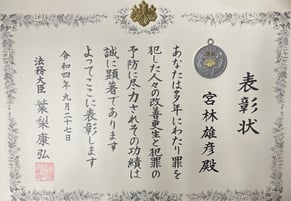 表彰状
宮林雄彦殿
あなたは多年にわたり罪を
犯した人々の改善更生と犯罪の
予防に尽力されその功績は
誠に顕著であります
よってここに表彰します
令和四年九月二十七日
法務大臣 葉梨康弘